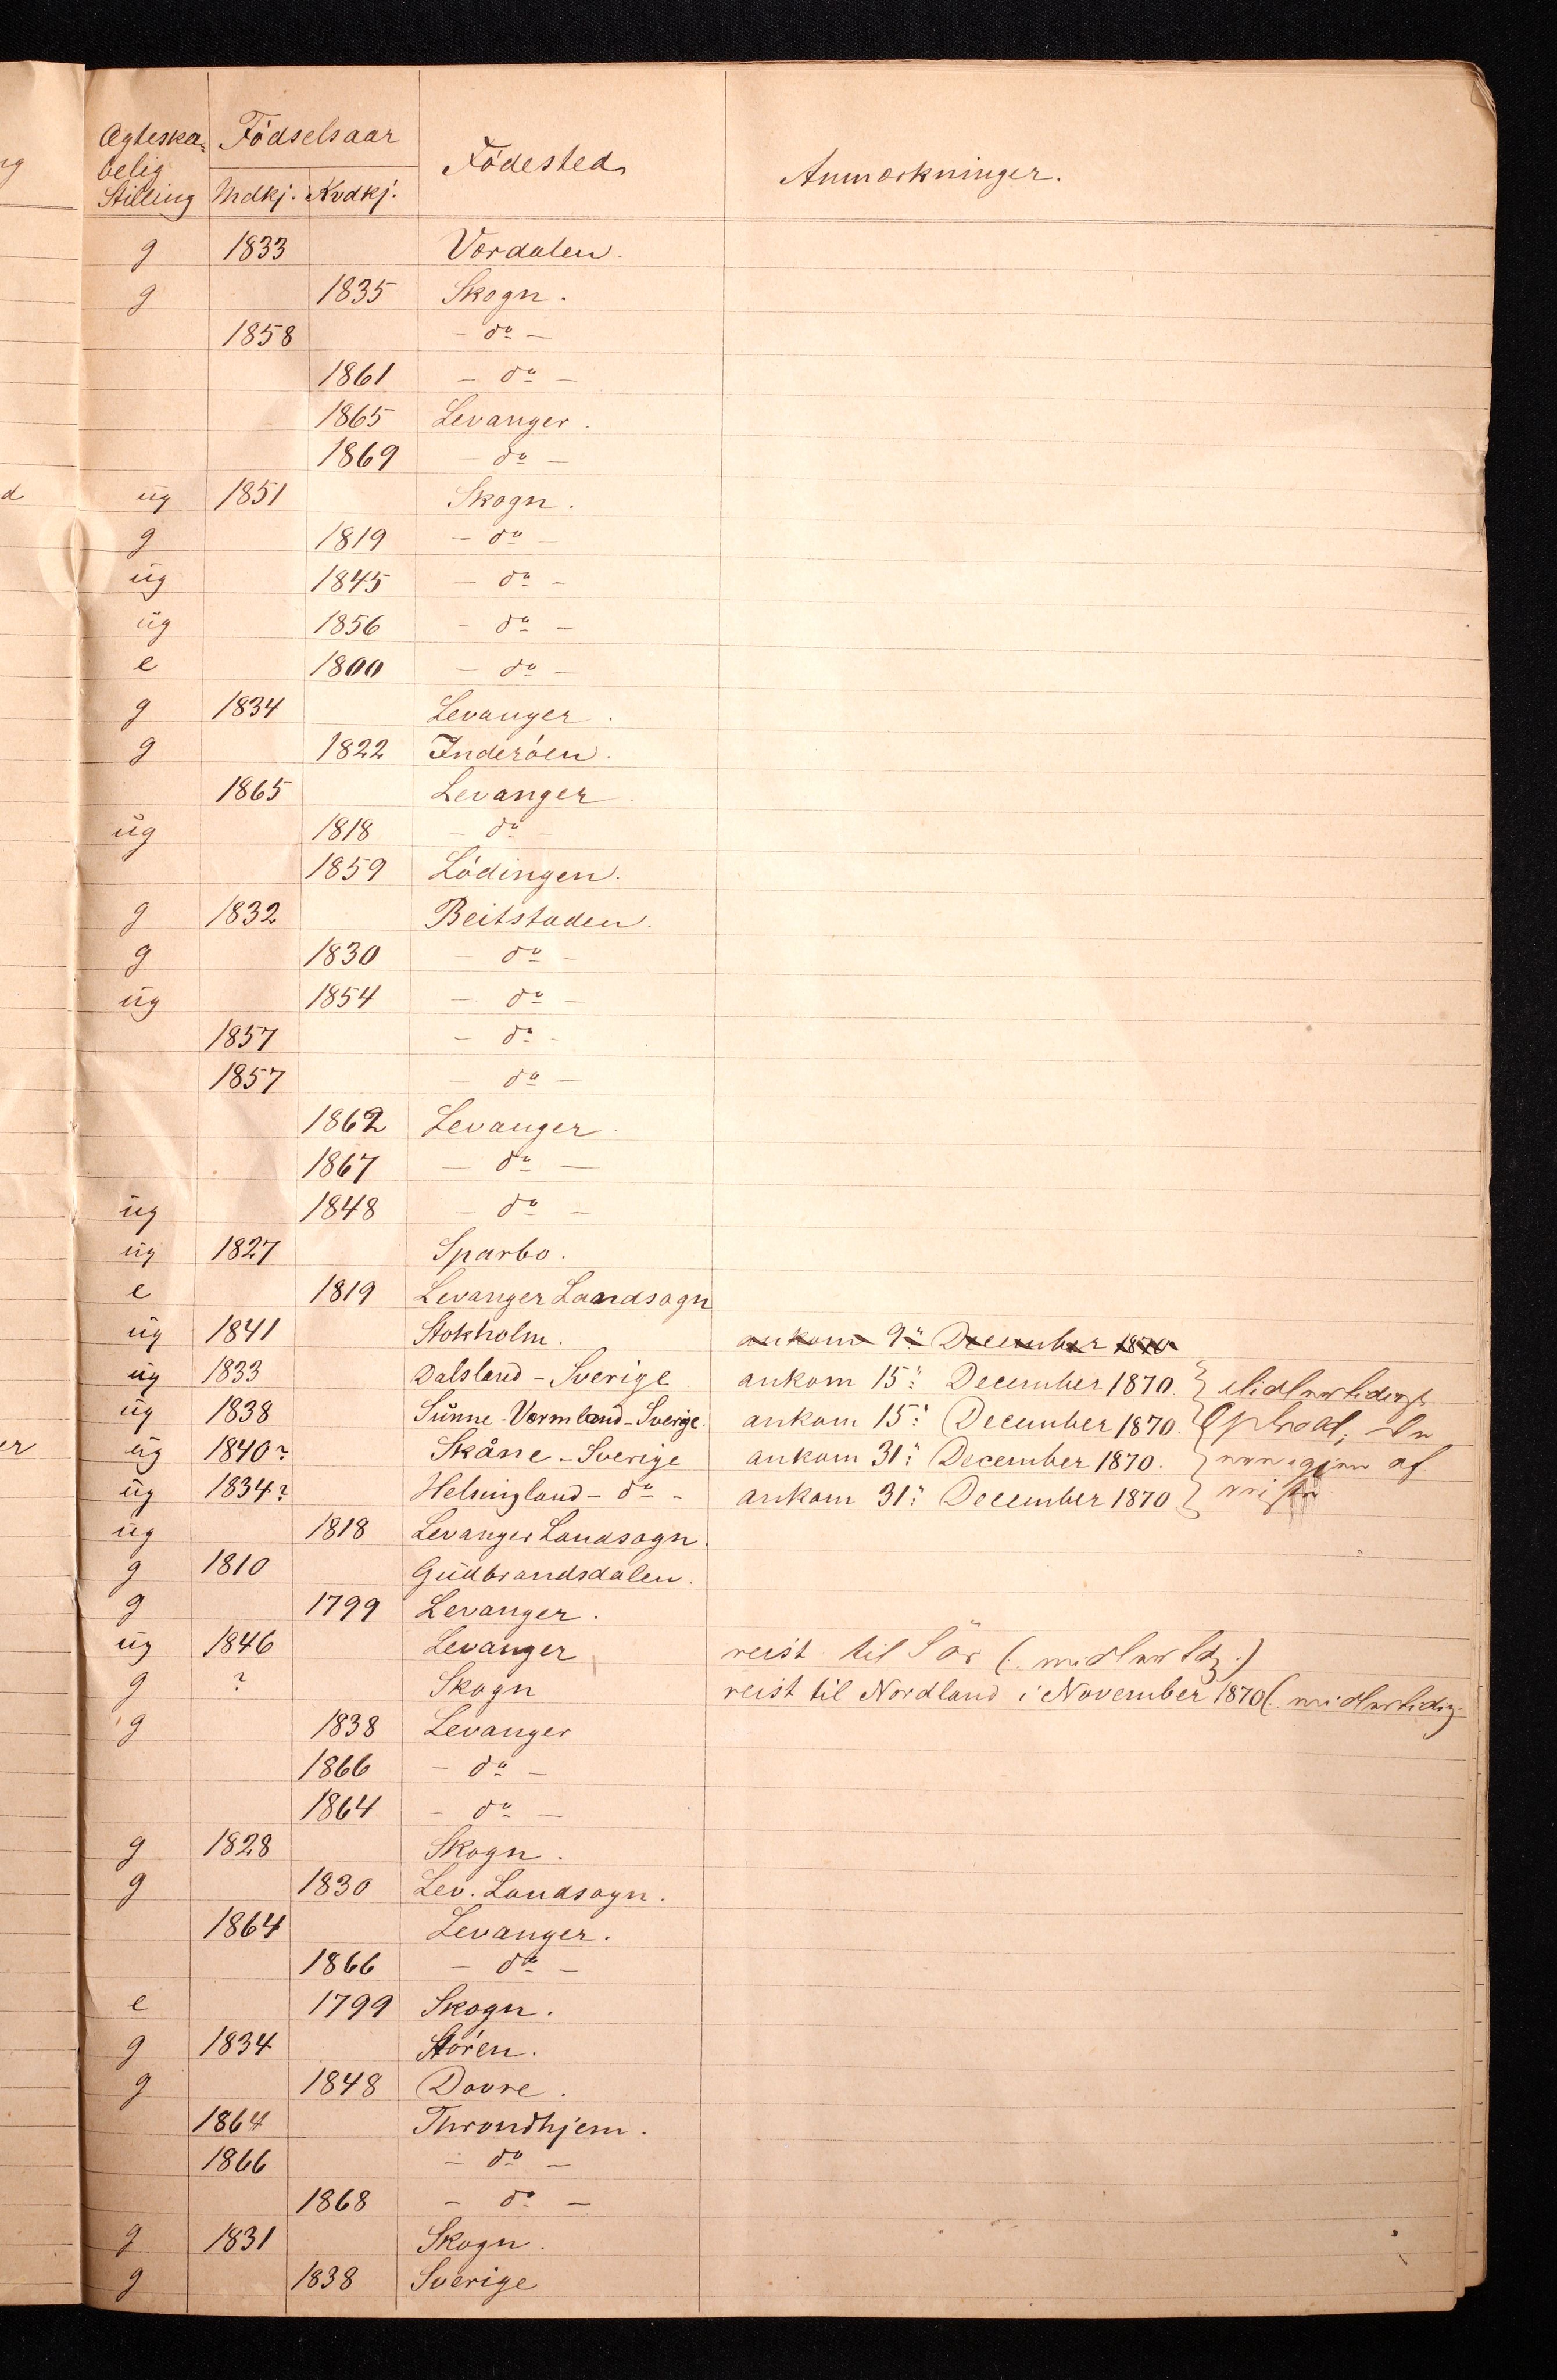 Ægteska-
belig
Stilling
Födselsaar
Mdkj. Kvdkj.
Födested
Anmærkninger.
g 1833 Værdalen.
g 1835 Skogn.
1858 - do -
1861 - do -
1865 Levanger.
1869 - do -
ug 1851 Skogn.
g 1819 - do -
ug 1845 - do -
ug 1856 - do -
e 1800 - do -
g 1834 Levanger.
g 1822 Inderöen.
1865 Levanger.
ug 1818 - do -
1859 Lödingen.
g 1832 Beitstaden.
g 1830 - do -
ug 1854 - do -
1857 - do -
1857 - do -
1862 Levanger.
1867 - do -
ug 1848 - do -
ug 1827 Sparbo.
e 1819 Levanger Landsogn
ug 1841 Stokholm. ankom 9: December 1870
ug 1833 Dalsland - Sverige ankom 15: December 1870. } Midlertidigt
ug 1838 Sunne - Vermland - Sverige. ankom 15: December 1870. } Ophold;
ug 1840? Skåne - Sverige ankom 31: December 1870. } af
ug 1834? Helsingland - do - ankom 31: December 1870 }
ug 1818 Levanger Landsogn.
g 1810 Gudbrandsdalen.
g 1799 Levanger.
ug 1846 Levanger reist til Sör (midlertdg.)
g ? Skogn reist til Nordland i November 1870 (midlertidig
g 1838 Levanger
1866 - do -
1864 - do -
g 1828 Skogn.
g 1830 Lev. Landsogn.
1864 Levanger.
1866 - do -
e 1799 Skogn.
g 1834 Stören.
g 1848 Dovre.
1864 Throndhjem.
1866 - do -
1868 - do -
g 1831 Skogn.
g 1838 Sverige